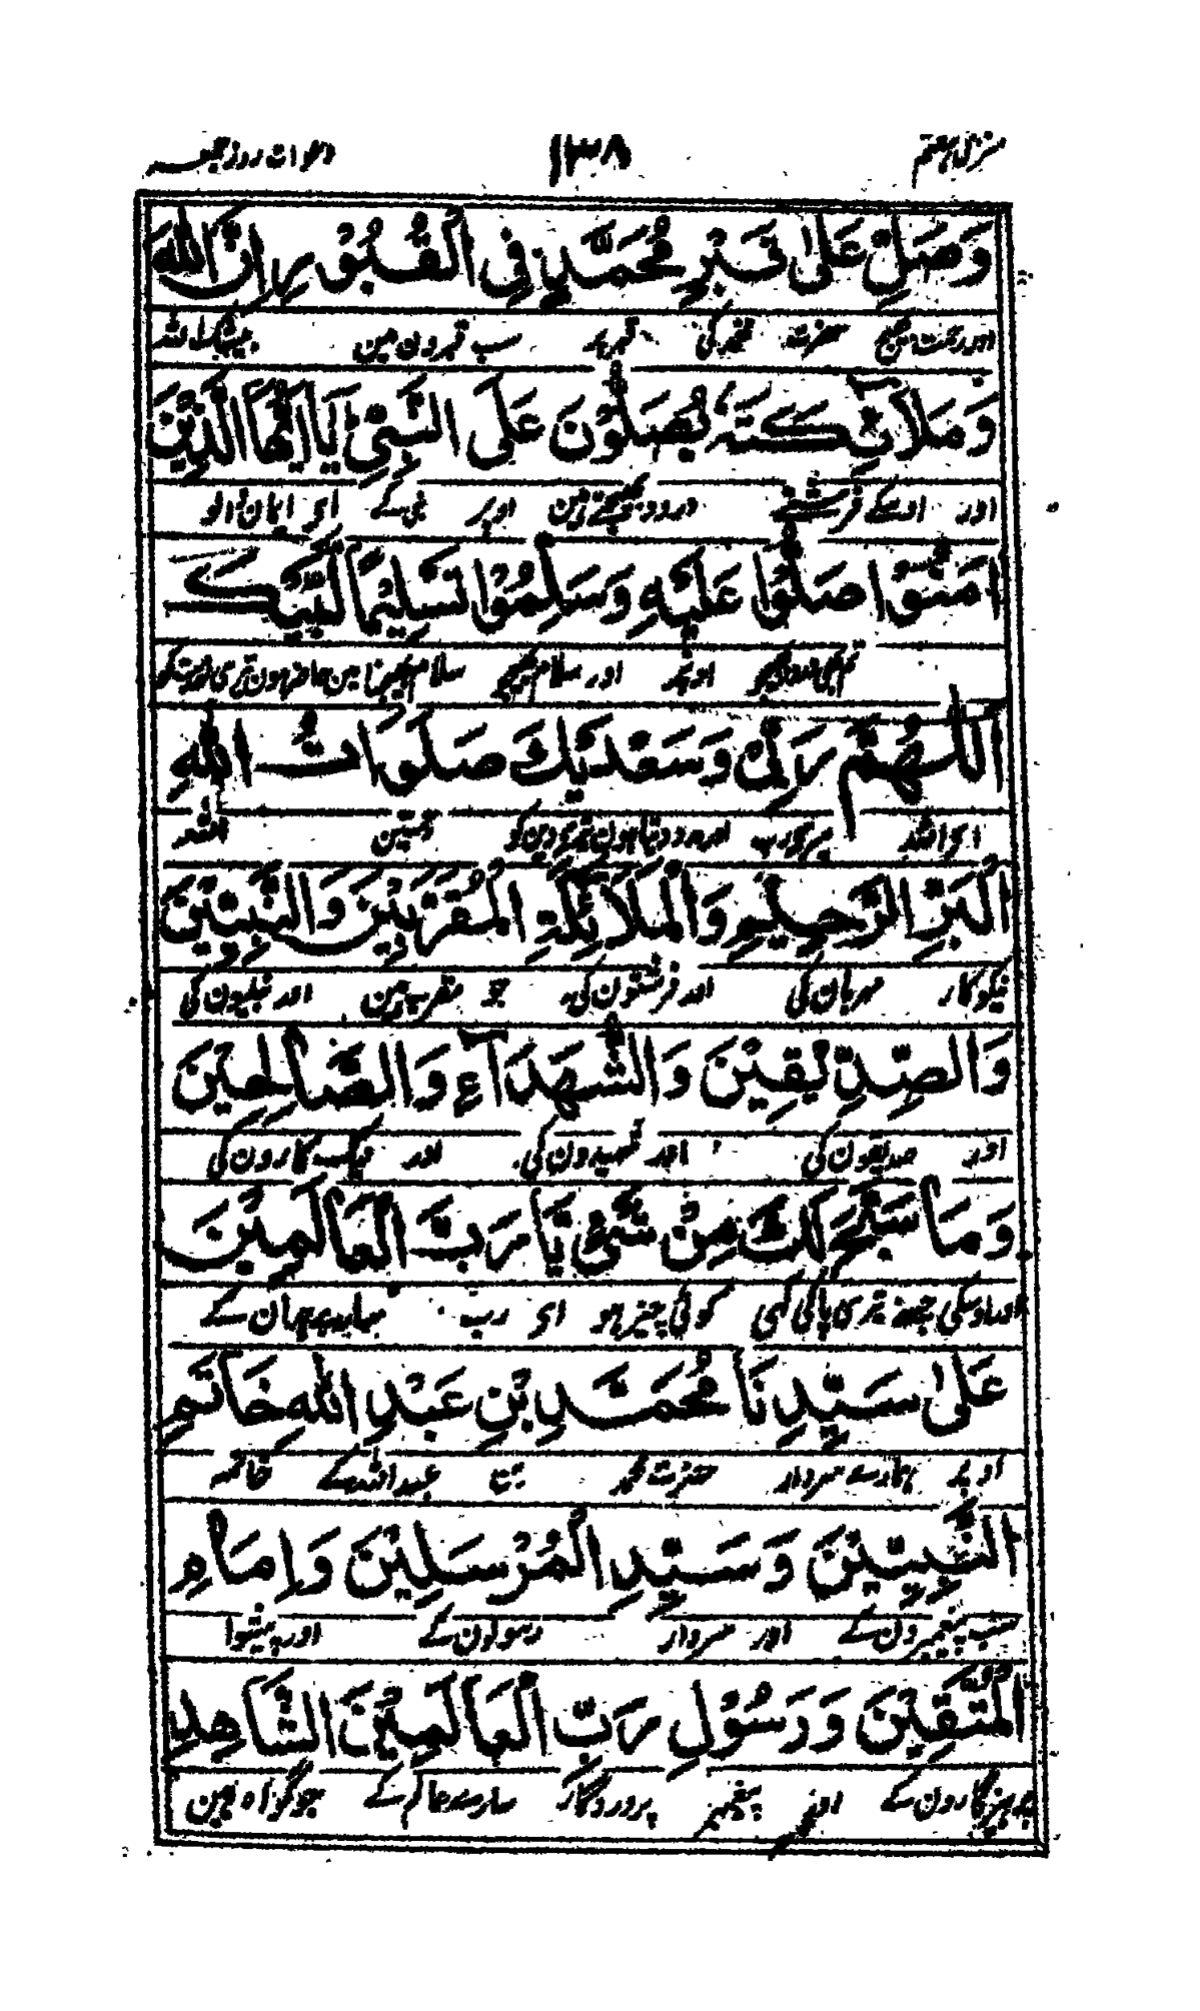 منزل ہفتم ۱۳۸ دعوات روز جمعہ
وَصَلِّ عَلٰی قَبْرِ مُحَمَّدٍ فِی الْقُبُوْرِ اِنَّ اللّٰهَ
اور رحمت بھیج حضرت محمد کی قبر پر سب قبرون مین بیشک اللہ
وَمَلَآئِكَتَهٗ یُصَلُّوْنَ عَلَی النَّبِیِّ یَا اَیُّهَا الَّذِیْنَ
اور اوسکے فرشتے درود بھیجتے ہین اوپر نبی کے ای ایمان والو
اٰمَنُوْا صَلُّوْا عَلَیْهِ وَسَلِّمُوْا تَسْلِیْمًا لَبَّیْكَ
تم بھی درود بھیجو اوپر اور سلام بھیجو سلام بھیجنا مین حاضر ہون تیری خدمت کو
اَللّٰهُمَّ رَبِّیْ وَسَعْدَیْكَ صَلَوَاتُ اللّٰهِ
ای اللہ میرے رب اور مدد دیتا ہون تیری دین کو رحمتین اللہ
الْبَرِّ الرَّحِیْمِ وَالْمَلَآئِكَةِ الْمُقَرَّبِیْنَ وَالنَّبِیِّیْنَ
نیکوکار مہربان کی اور فرشتون کی جو مقرب ہین اور نبیون کی
وَالصِّدِّیْقِیْنَ وَالشُّهَدَآءِ وَالصَّالِحِیْنَ
اور صدیقون کی اور شہیدون کی اور نیک کارون کی
وَمَا سَبَّحَ لَكَ مِنْ شَیْءٍ یَا رَبَّ الْعَالَمِیْنَ
اور اوسکی جسنے تیری پاکی کہی کوئی چیز ہو ای رب سارے جہان کے
عَلٰی سَیِّدِنَا مُحَمَّدِ بْنِ عَبْدِ اللّٰهِ خَاتَمِ
اوپر ہمارے سردار حضرت محمد بیٹا عبداللہ کے خاتم
النَّبِیِّیْنَ وَسَیِّدِ الْمُرْسَلِیْنَ وَاِمَامِ
سب پیغمبرون کے اور سردار رسولون کے اور پیشوا
الْمُتَّقِیْنَ وَرَسُوْلِ رَبِّ الْعَالَمِیْنَ الشَّاهِدِ
پرہیزگارون کے اور پیغمبر پروردگار سارے عالم کے جو گواہ ہین